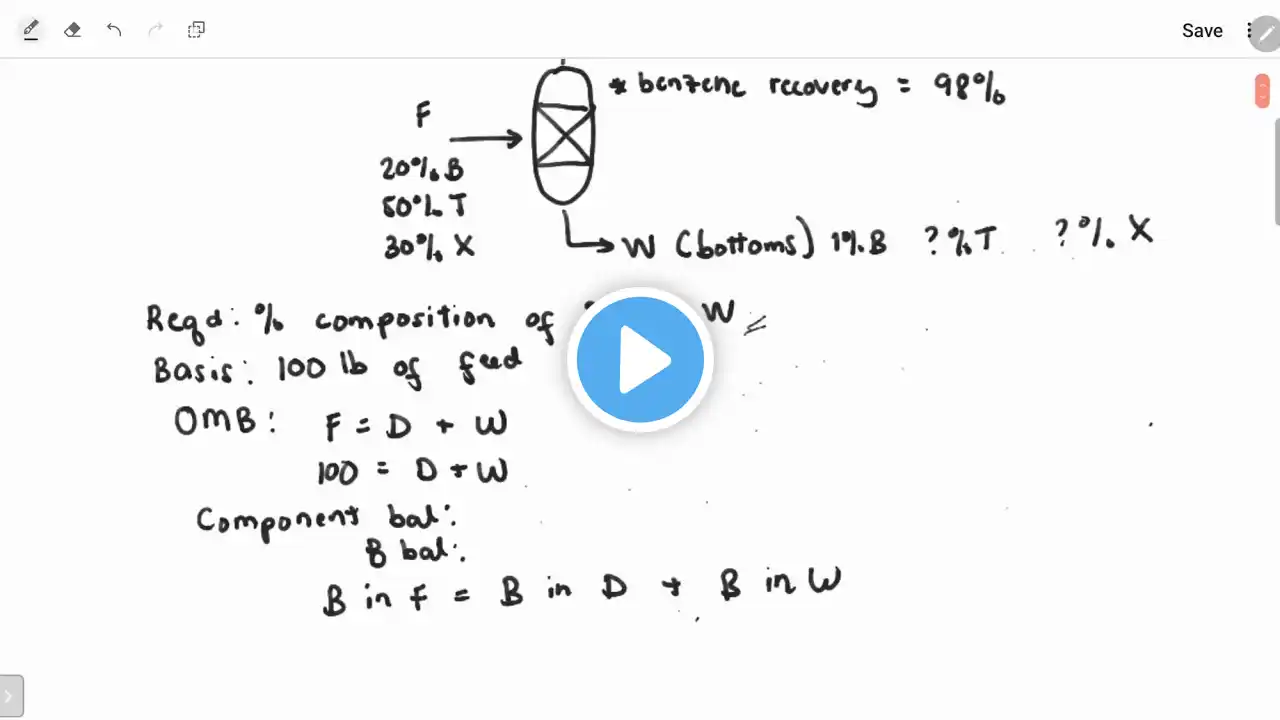 Save
* benzene recovery = 98%
F
20% B
50% T
30% X
W (bottoms) 1% B ?% T ?% X
Reqd: % composition of W
Basis: 100 lb of feed
OMB: F = D + W
100 = D + W
Component bal:
B bal:
B in F = B in D + B in W